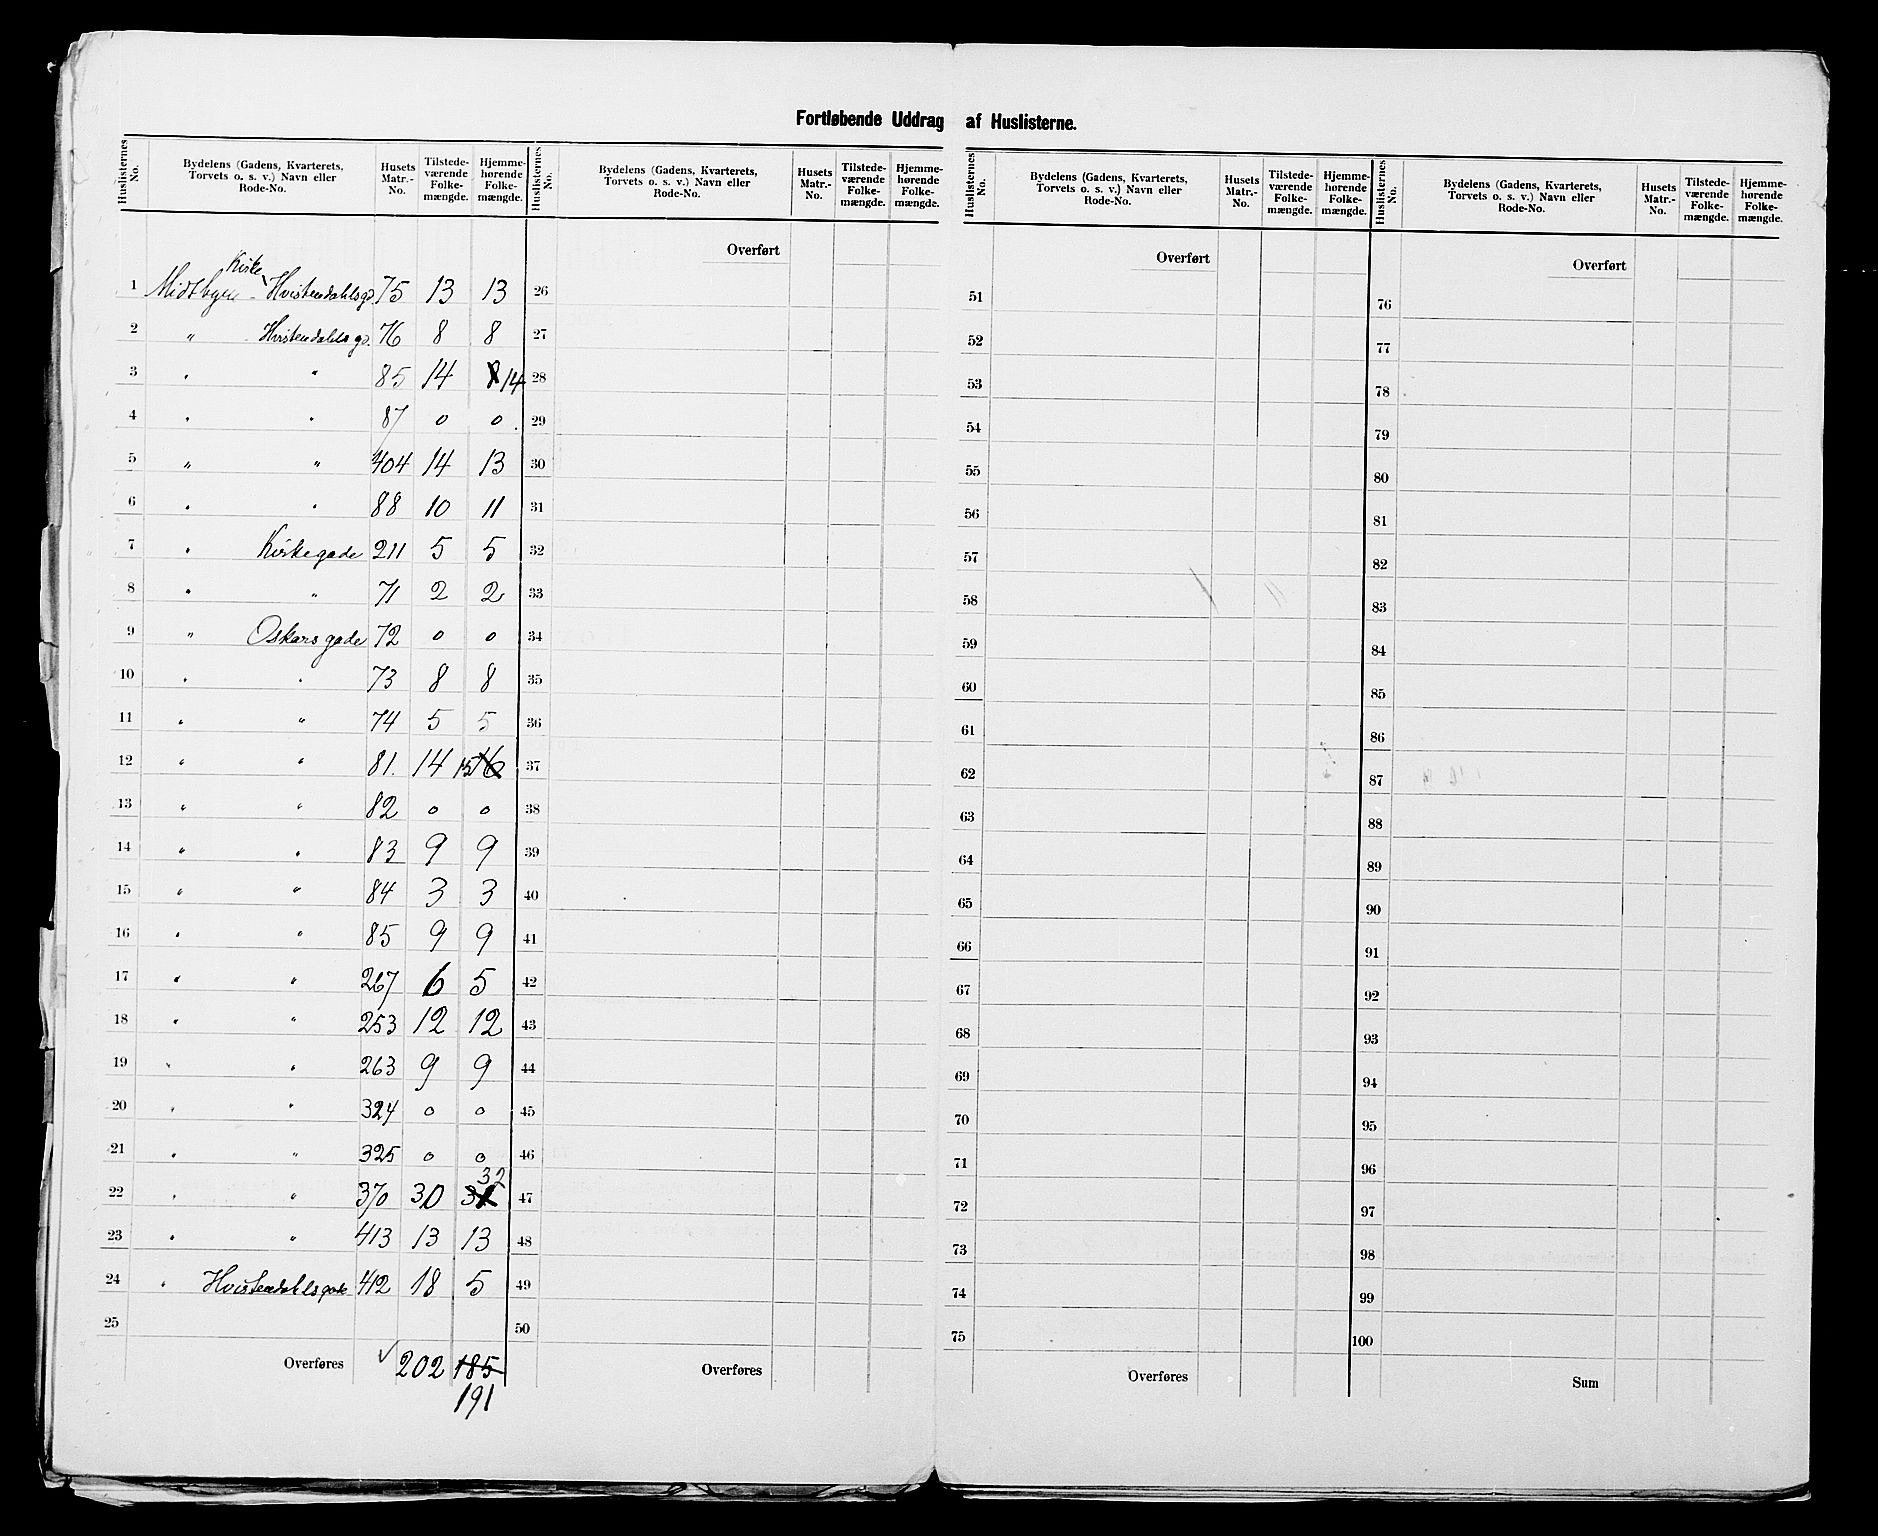 Fortløbende Uddrag af Huslisterne.
Huslisternes No. Bydelens (Gadens, Kvarterets, Torvets o. s. v.) Navn eller Rode-No. Husets Matr.-No. Tilstede-værende Folke-mængde. Hjemme-hørende Folke-mængde.
Huslisternes No. Bydelens (Gadens, Kvarterets, Torvets o. s. v.) Navn eller Rode-No. Husets Matr.-No. Tilstede-værende Folke-mængde. Hjemme-hørende Folke-mængde.
Huslisternes No. Bydelens (Gadens, Kvarterets, Torvets o. s. v.) Navn eller Rode-No. Husets Matr.-No. Tilstede-værende Folke-mængde. Hjemme-hørende Folke-mængde.
Huslisternes No. Bydelens (Gadens, Kvarterets, Torvets o. s. v.) Navn eller Rode-No. Husets Matr.-No. Tilstede-værende Folke-mængde. Hjemme-hørende Folke-mængde.
Overført Overført Overført
Kirke
1 Midtbyen - Hvistendahlsgd. 75 13 13 26 51 76
2 " - Hvistendahlsgd. 76 8 8 27 52 77
3 " " 85 14 8 14 28 53 78
4 " " 87 0 0 29 54 79
5 " " 404 14 13 30 55 80
6 " " 88 10 11 31 56 81
7 " Kirkegade 211 5 5 32 57 82
8 " " 71 2 2 33 58 83
9 " Oskarsgade 72 0 0 34 59 84
10 " " 73 8 8 35 60 85
11 " " 74 5 5 36 61 86
12 " " 81. 14 15 16 37 62 87
13 " " 82 0 0 38 63 88
14 " " 83 9 9 39 64 89
15 " " 84 3 3 40 65 90
16 " " 85 9 9 41 66 91
17 " " 267 6 5 42 67 92
18 " " 253 12 12 43 68 93
19 " " 263 9 9 44 69 94
20 " " 324 0 0 45 70 95
21 " " 325 0 0 46 71 96
32
22 " " 370 30 31 47 72 97
23 " " 413 13 13 48 73 98
24 " Hvistendahlsgade 412 18 5 49 74 99
25 50 75 100
Overføres √ 202 185 Overføres Overføres Sum
191